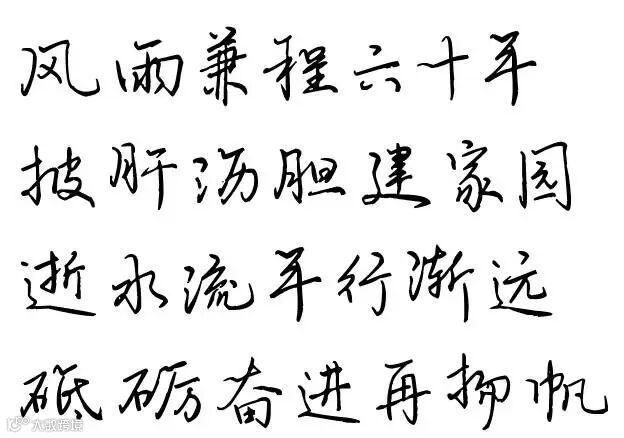 风雨兼程六十年
披肝沥胆建家园
逝水流年行渐远
砥砺奋进再扬帆
大数跨境